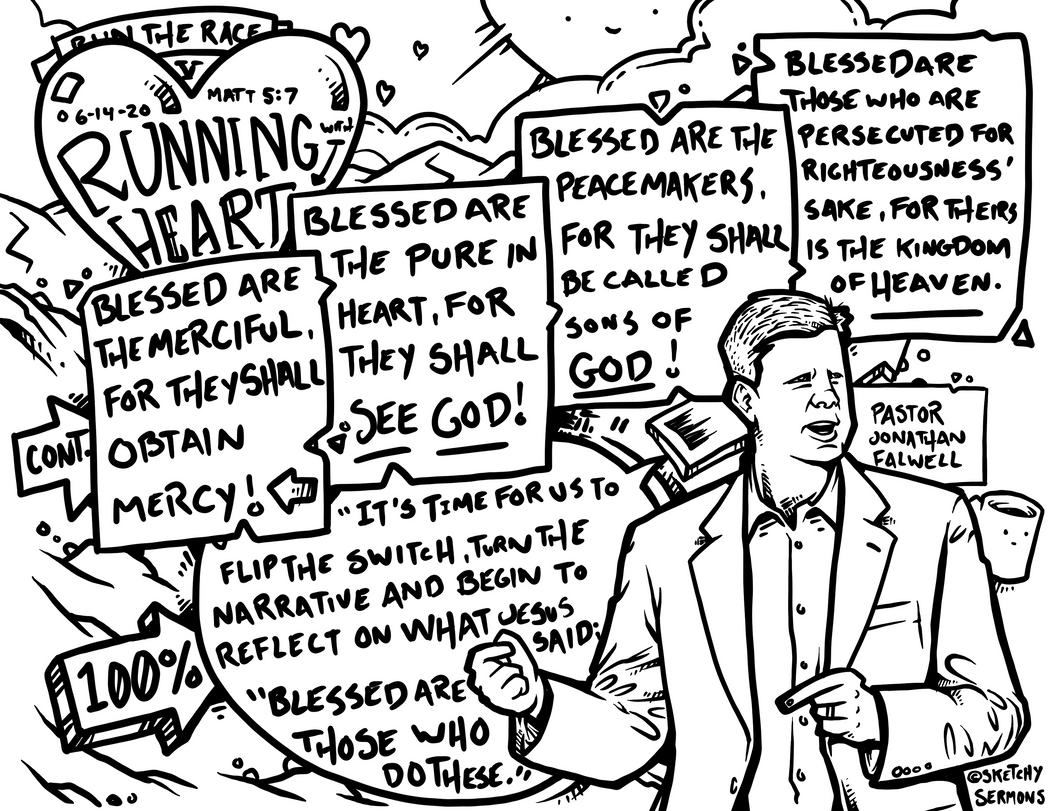 RUN THE RACE
06-14-20
MATT 5:7
RUNNING
WITH
HEART
BLESSED ARE
THE MERCIFUL,
FOR THEY SHALL
OBTAIN
MERCY!
BLESSED ARE
THE PURE IN
HEART, FOR
THEY SHALL
SEE GOD!
BLESSED ARE THE
PEACEMAKERS,
FOR THEY SHALL
BE CALLED
SONS OF
GOD!
BLESSED ARE
THOSE WHO ARE
PERSECUTED FOR
RIGHTEOUSNESS'
SAKE, FOR THEIRS
IS THE KINGDOM
OF HEAVEN.
PASTOR
JONATHAN
FALWELL
CONT.
"IT'S TIME FOR US TO
FLIP THE SWITCH, TURN THE
NARRATIVE AND BEGIN TO
REFLECT ON WHAT JESUS
SAID;
"BLESSED ARE
THOSE WHO
DO THESE."
100%
©SKETCHY
SERMONS